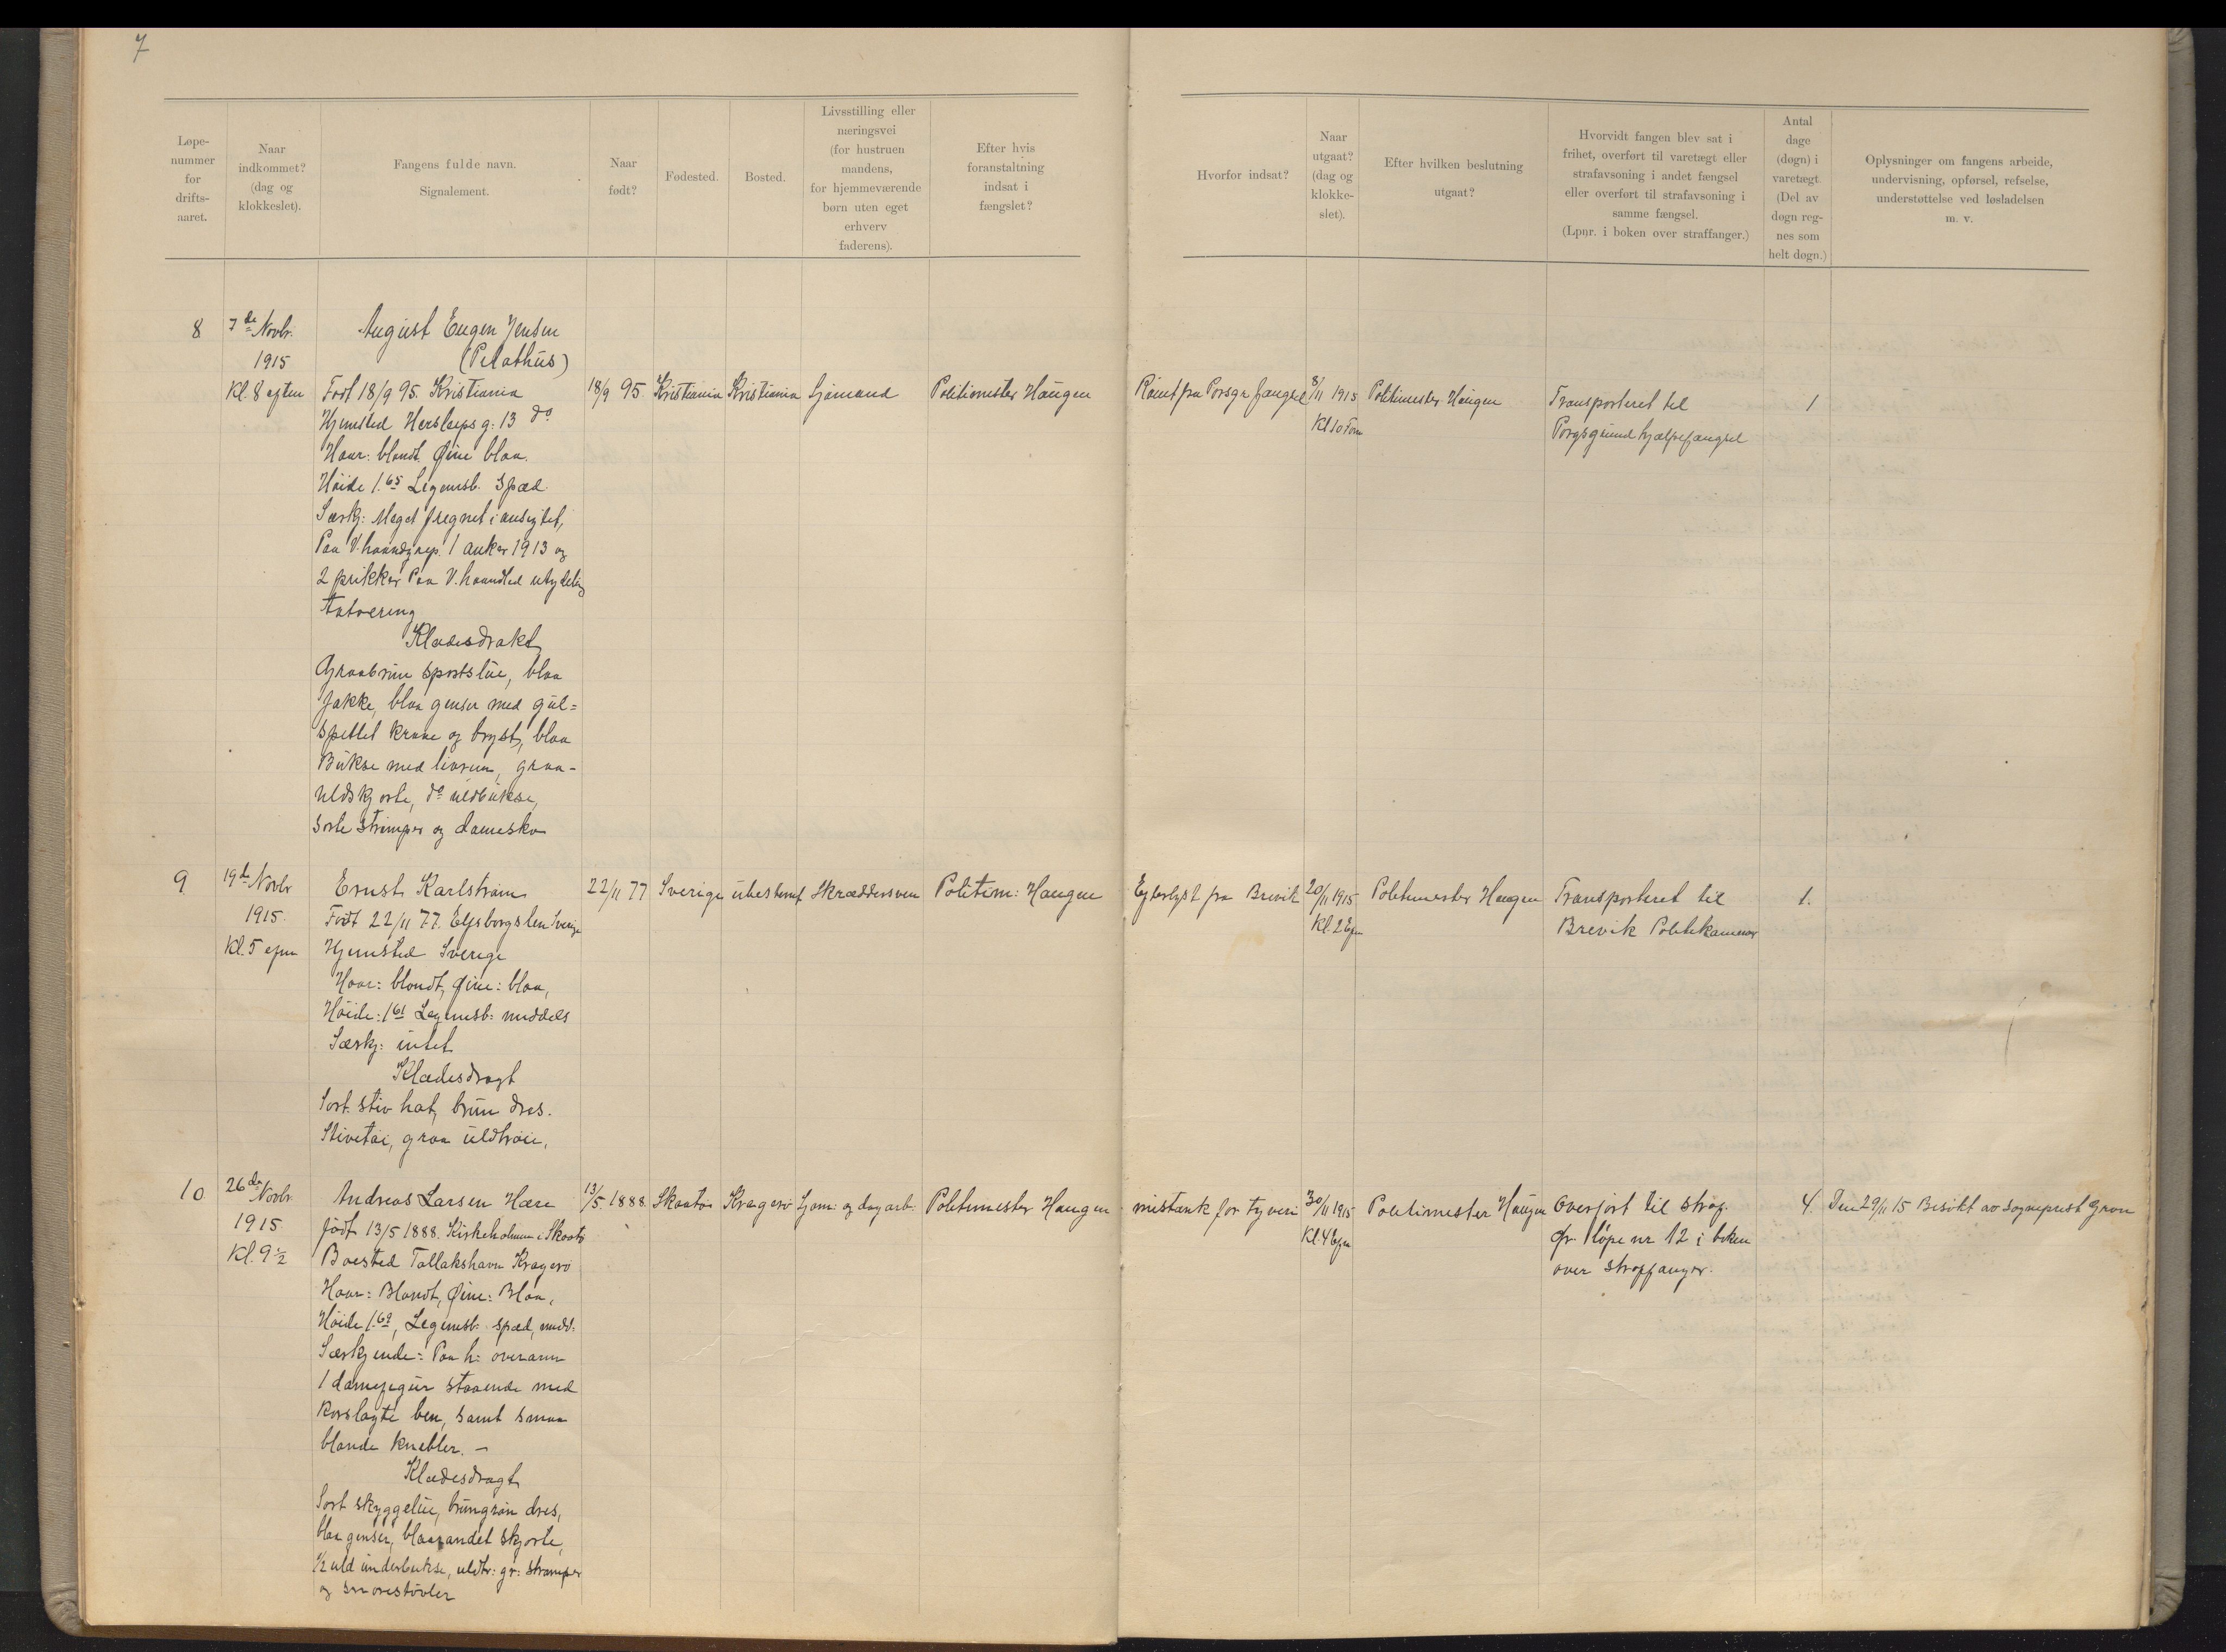 7
Løpe-
nummer
for
drifts-
aaret.
Naar
indkommet?
(dag og
klokkeslet).
Fangens fulde navn.
Signalement.
Naar
født?
Fødested.
Bosted.
Livsstilling eller
næringsvei
(for hustruen
mandens,
for hjemmeværende
børn uten eget
erhverv
faderens).
Efter hvis
foranstaltning
indsat i
fængslet?
Hvorfor indsat?
Naar
utgaat?
(dag og
klokke-
slet).
Efter hvilken beslutning
utgaat?
Hvorvidt fangen blev sat i
frihet, overført til varetægt eller
strafavsoning i andet fængsel
eller overført til strafavsoning i
samme fængsel.
(Lpnr. i boken over straffanger.)
Antal
dage
(døgn) i
varetægt.
(Del av
døgn reg-
nes som
helt døgn.)
Oplysninger om fangens arbeide,
undervisning, opførsel, refselse,
understøttelse ved løsladelsen
m. v.
8
7de Novbr.
1915
Kl. 8 eften
August Eugen Jensen
(Pilathus)
Født 18/9 95. Kristiania
Hjemsted Herslebs g: 13 do
Haar: blondt. Øine blaa.
Høide 1.65 Legemsb. Spæd.
Særkj: Meget fregnet i ansigtet,
Paa V. haandgrep. 1 anker 1913 og
2 prikker Paa V. haandled utydelig
Tatovering
Klædesdrakt
Graabrun sportslue, blaa
Jakke, blaa genser med gul=
spettet krave og bryst, blaa
Bukse med livrem, graa-
Uldskjorte, do uldbukse,
sorte strømper og damesko
18/9 95.
Kristiania
Kristiania
Sjømand
Politimester Haugen
Rømt fra Porsgr fængsel
8/11 1915
Kl 10 Form
Politimester Haugen
Transporteret til
Porgsgrund hjælpefængsel
1
9
19de Novbr
1915.
Kl. 5 efm
Ernst Karlstrøm
Født 22/11 77. Elfsborgslen Sverige
Hjemsted Sverige
Haar: blondt, Øine: blaa,
Høide: 1 61 Legemsb: middels
Særkj: intet
Klædesdragt
Sort stiv hat, brun dres.
Stivetøi, graa uldtrøie,
22/11 77
Sverige
ubestemt
Skræddersven
Politim: Haugen
Efterlyst fra Brevik
20/11 1915
Kl. 2 Efm
Politimester Haugen
Transporteret til
Brevik Politikammer
1.
10
26de Novbr.
1915
Kl. 9 1/2
Andreas Larsen Hære
født 13/5 1888. Kirkeholmen i Skaatø
Boested Tallakshavn Kragerø
Haar: Blondt, Øine: Blaa,
Høide 1.69, Legemsb: spæd, midd:
Særkjende: Paa h: overarm
1 damefigur staaende med
korslagte ben, samt smaa
blonde knebler. –
Klædesdragt
Sort skyggelue, brungrøn dres,
blaa genser, blaarandet skjorte,
1/2 uld underbukse, uldtr: gr: strømper
og snørestøvler
13/5. 1888.
Skaatø
Kragerø
Sjøm: og dagarb.
Politimester Haugen
mistænk for tyveri
30/11 1915
Kl. 4 Efm
Politimester Haugen
Overført til straf.
fr. løpe nr 12 i boken
over straffanger.
4.
Den 29/11 15 Besøkt av Sogneprest Grøn